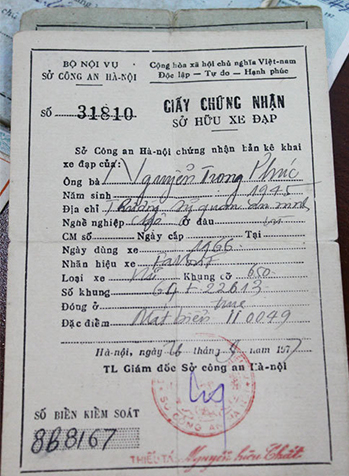 BỘ NỘI VỤ
SỞ CÔNG AN HÀ-NỘI
Cộng hòa xã hội chủ nghĩa Việt-nam
Độc lập - Tự do - Hạnh phúc
SỐ 31810
GIẤY CHỨNG NHẬN
SỞ HỮU XE ĐẠP
Sở Công an Hà-nội chứng nhận bản kê khai
xe đạp của:
Ông bà Nguyễn Trọng Phúc
Năm sinh 1945
Địa chỉ Trường sỹ quan an ninh
Nghề nghiệp Ở đâu
CM số Ngày cấp Tại
Ngày dùng xe 1966
Nhãn hiệu xe Favorit
Loại xe Nữ Khung cỡ 650
Số khung 22613
Đóng ở
Đặc điểm Mất biển 110049
Hà-nội, ngày 26 tháng năm 1977
TL Giám đốc Sở công an Hà-nội
SỐ BIỂN KIỂM SOÁT
868167
THIẾU TÁ: Nguyễn Hữu Thất